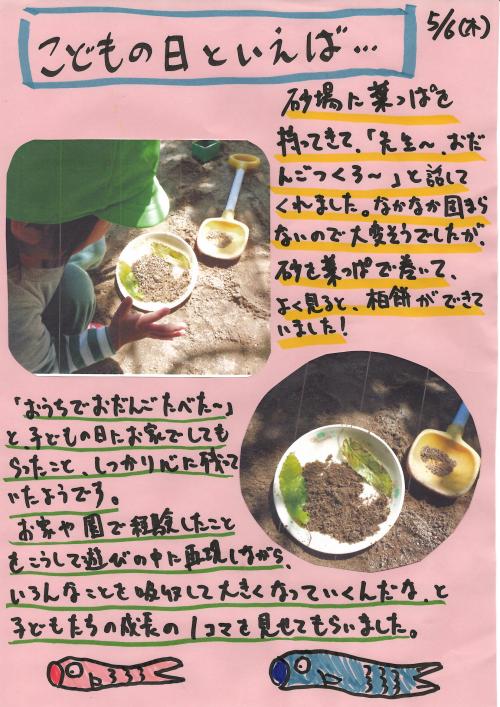 5/6(木)
こどもの日といえば…
砂場に葉っぱを
持ってきて、「先生〜、おだ
んごつくろ〜」と話して
くれました。なかなか固まら
ないので大変そうでしたが、
砂を葉っぱで巻いて、
よく見ると、柏餅ができて
いました!
「おうちでおだんごたべた〜」
と、子どもの日にお家でしても
らったこと、しっかり心に残って
いたようです。
お家や園で経験したこと
をこうして遊びの中に再現しながら、
いろんなことを吸収して大きくなっていくんだな、と
子どもたちの成長の1コマを見せてもらいました。